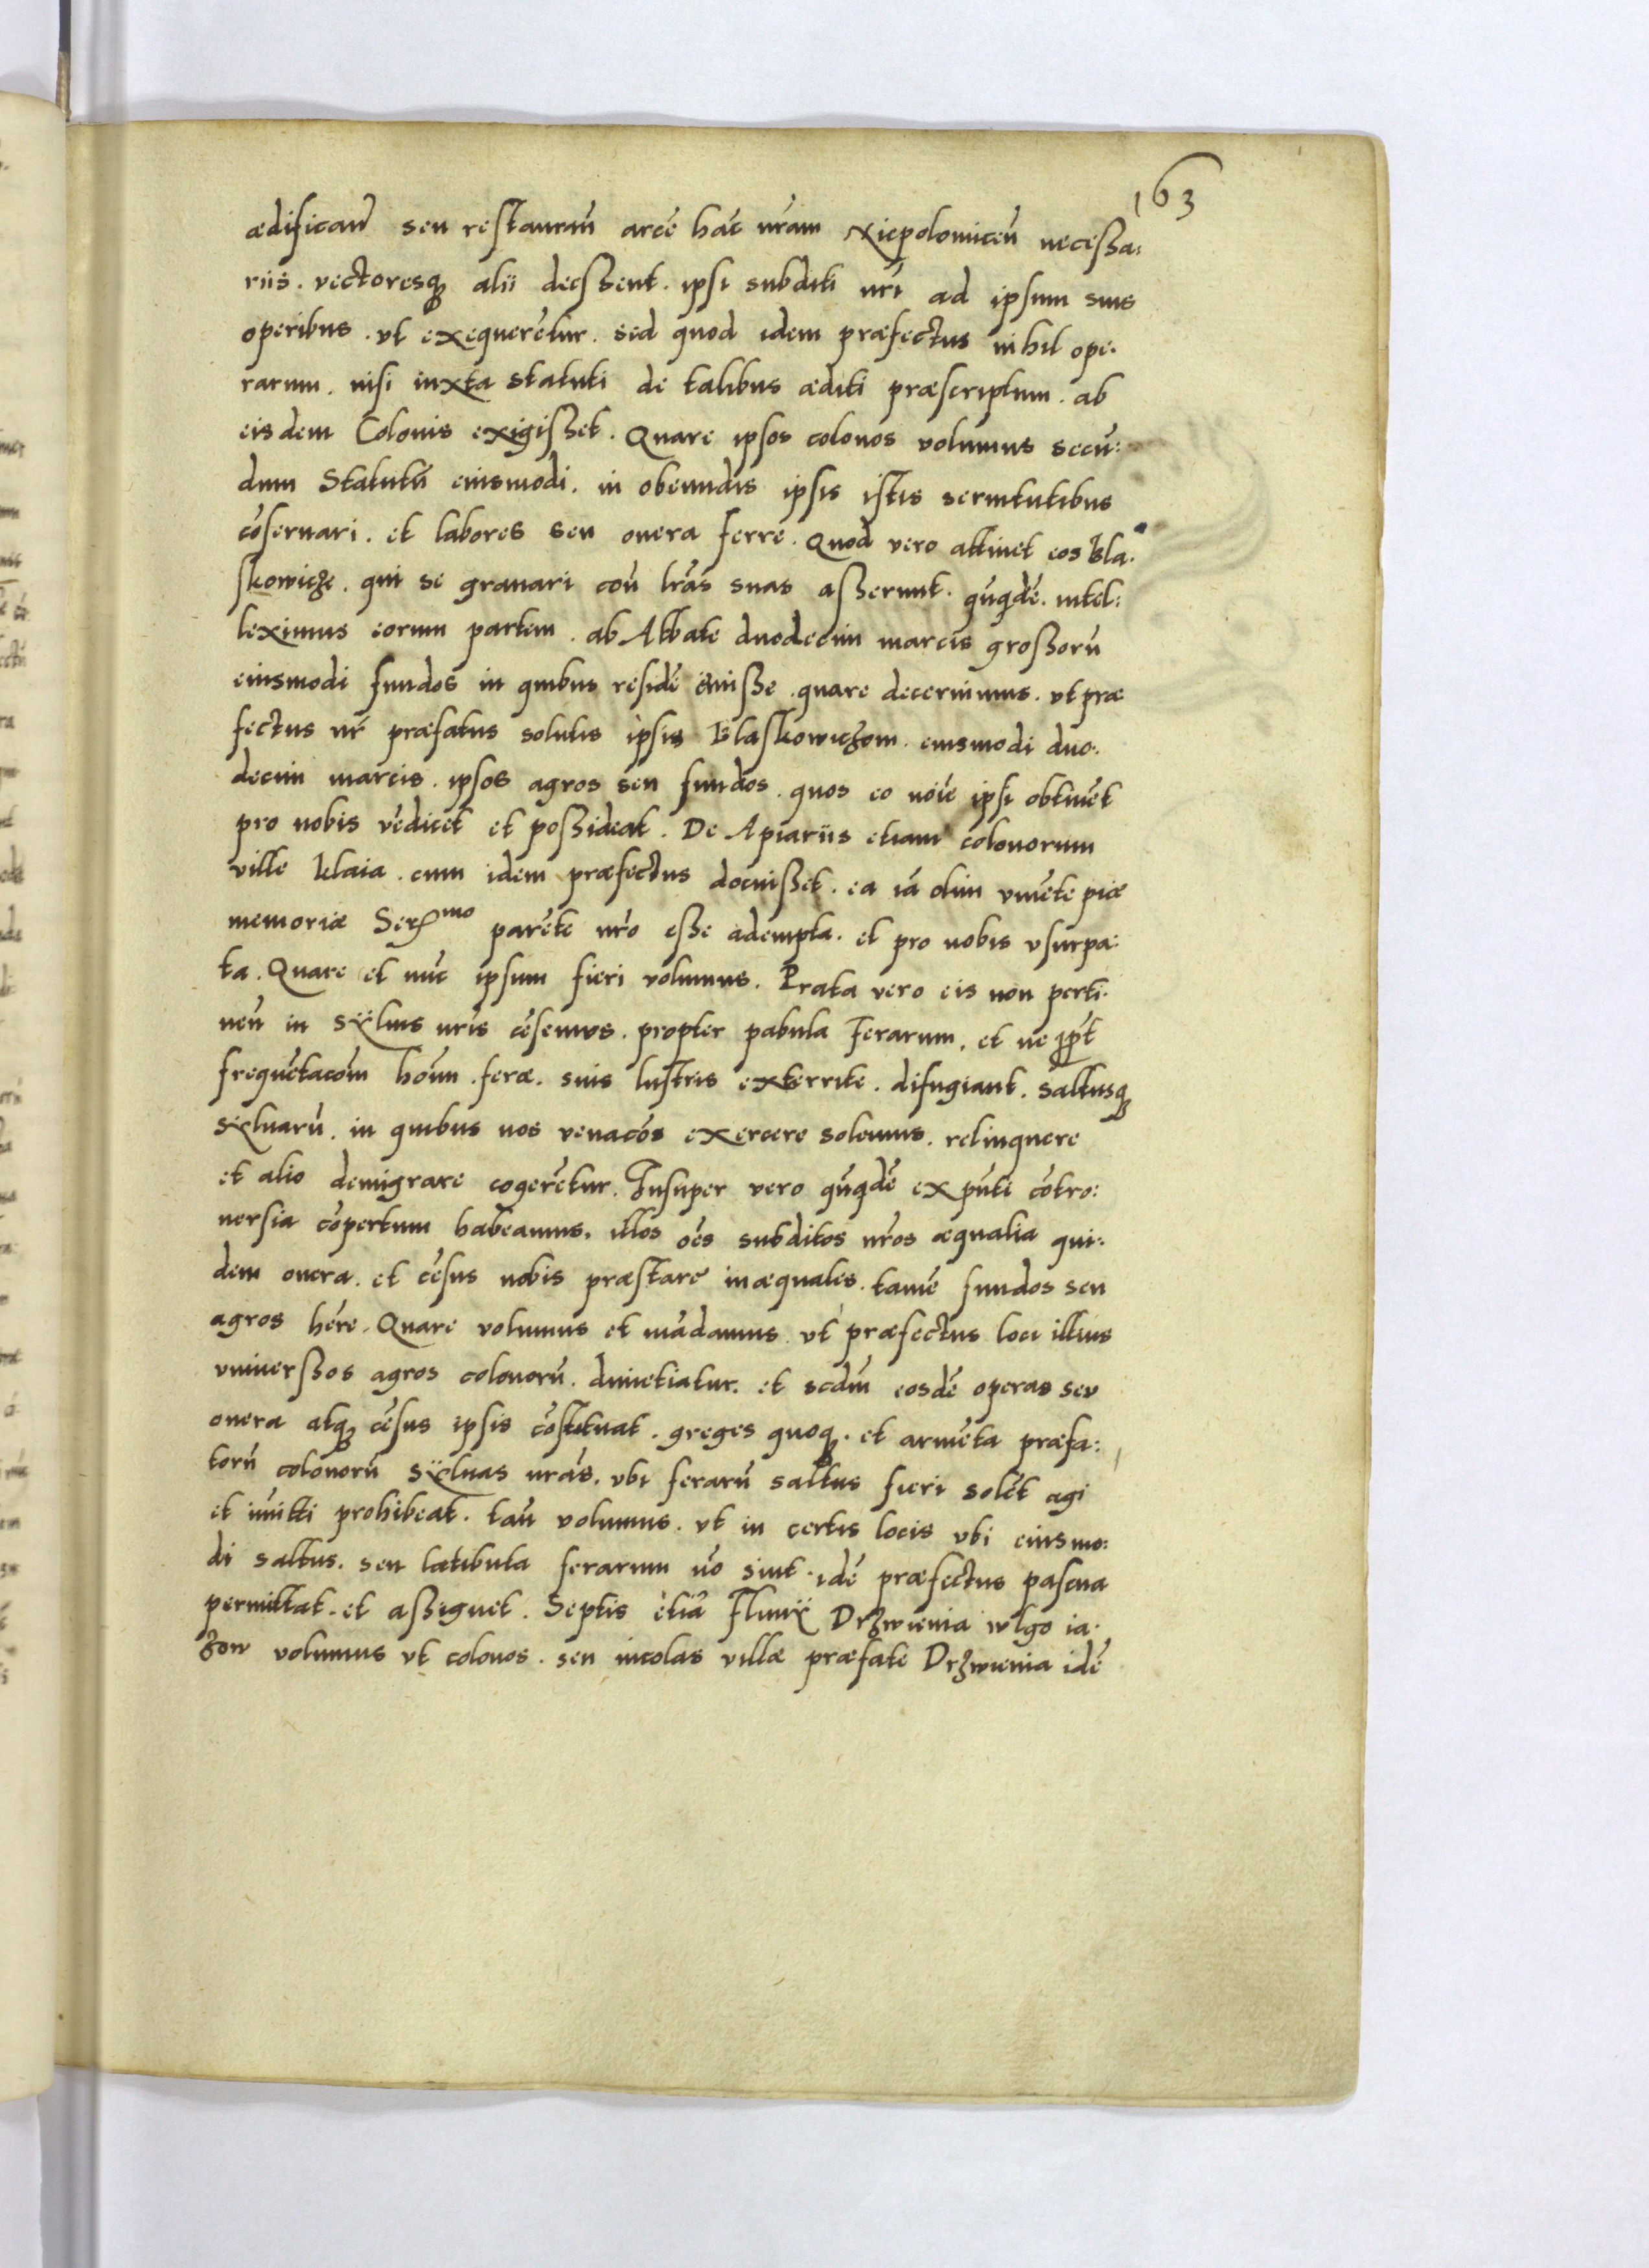 163
ædifican̄ seu restaurañ arcē hāc nr̄am Niepolomiceñ necessa:
riis. vectoresq3 alii deessent. ipsi subditi nr̄i ad ipsum suis
operibus. vt exequerētur. sed quod idem præfectus nihil ope.
rarum. nisi iuxta statuti de talibus æditi præscriptum. ab
eisdem Colonis exigisset. Quare ipsos colonos volumus secū:
dum Statutū eiusmodi. in obeundis ipsis istis seruitutibus
cōseruari. et labores seu onera ferre. Quod vero attinet eos Bla.
skowicze. qui se grauari coñ lr̄as suas asserunt. qūqdē. intel:
leximus eorum partem. ab Abbate duodecim marcis grossorū
eiusmodi fundos in quibus residē emisse. quare decernimus. vt præ
fectus nr̄ præfatus solutis ipsis Blaskowiczom. eiusmodi duo.
decim marcis. ipsos agros seu fundos. quos eo noīe ipsi obtinēt
pro nobis vēdicet et possideat. De Apiariis etiam colonorum
ville Klaia. cum idem præfectus docuisset. ea iā olim viuēte piæ
memoriæ Ser^mo parēte nr̄o esse adempta. et pro nobis vsurpa:
ta. Quare et nūc ipsum fieri volumus. Prata vero eis non perti.
neñ in sÿluis nr̄is cēsemus. propter pabula Ferarum. et ne ꝓpt̄
frequētacoīm hoīm. feræ. suis lustris exterrite. difugiant. saltusq3
sÿluarū. in quibus nos venacōs exercere solemus. relinquere
et alio demigrare cogerētur. Insuper vero qūqdē ex pñti cōtro:
uersia cōpertum habeamus. illos oēs subditos nr̄os æqualia qui:
dem onera. et cēsus nobis præstare inæquales. tamē fundos seu
agros hēre. Quare volumus et mādamus vt præfectus loci illius
vniuersos agros colonorū. dimetiatur. et scdm̄ eosdē operas seu
onera atq3 cēsus ipsis cōstituat. greges quoq3. et armēta præfa:
torū colonorū sÿluas nr̄as. vbi ferarū saltus fieri solēt agi
et im̄itti prohibeat. tañ volumus. vt in certis locis vbi eiusmo:
di saltus. seu latibula ferarum nō sint. idē præfectus pascua
permittat. et assignet. Septis etiā Fluuÿ Drzwienia wlgo ia.
zow volumus vt colonos. seu incolas villæ præfate Drzwienia idē